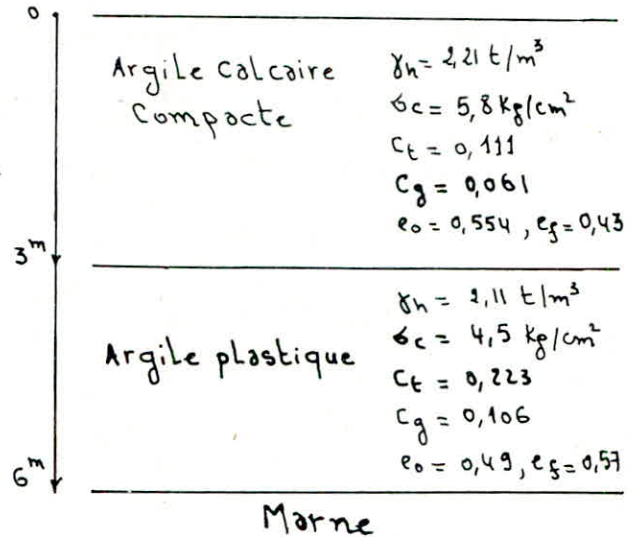 0
Argile Calcaire
Compacte
γh = 2,21 t/m³
σc = 5,8 Kg/cm²
Ct = 0,111
Cg = 0,061
e₀ = 0,554 , ef = 0,43
3ᵐ
Argile plastique
γh = 2,11 t/m³
σc = 4,5 Kg/cm²
Ct = 0,223
Cg = 0,106
e₀ = 0,49, ef = 0,57
6ᵐ
Marne